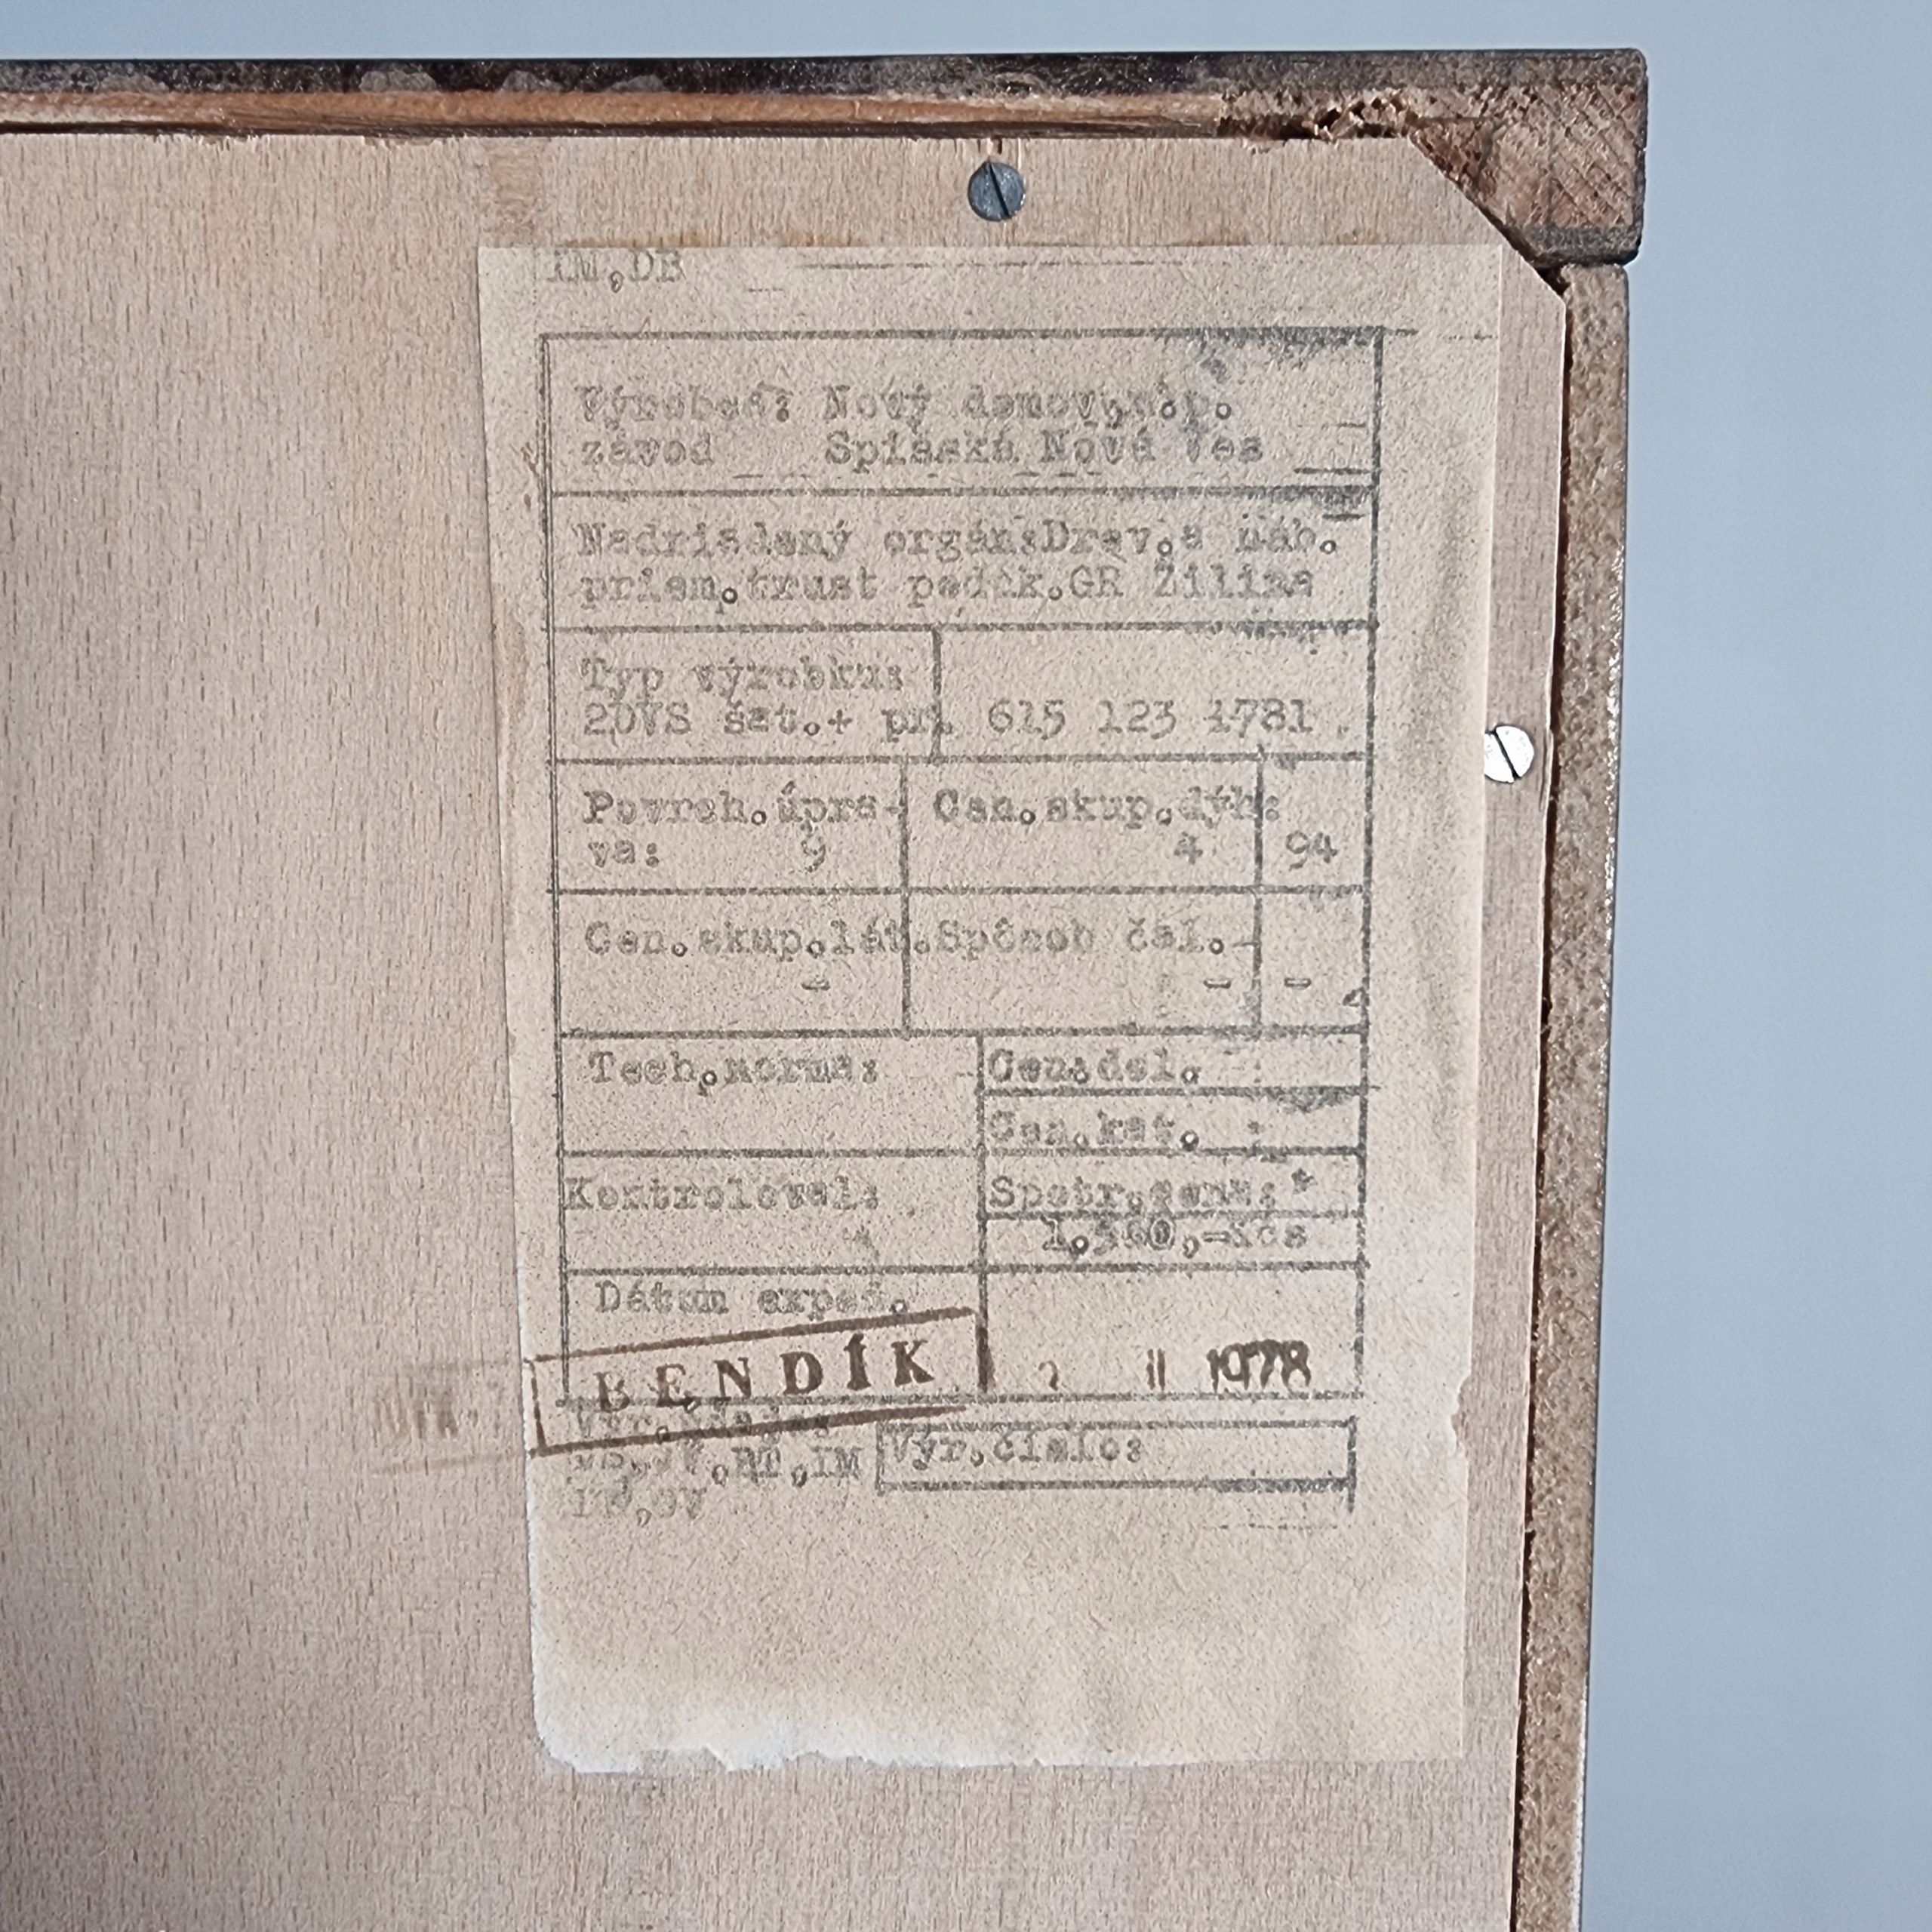 IM,DB
Výrobca: Nový domov,n.p.
závod Spišská Nová Ves
Nadriadený orgán:Drev.a náb.
priem.trust podnik.GR Žilina
Typ výrobku:
2DVS šat.+ pr. 615 123 1781
Povrch.úpra- Cen.skup.dýh:
va: 9 4 94
Cen.skup.lát. Spôsob čal.
- - -
Tech.norma: Cen.del.
Cen.kat. :
Kontroloval: Spotr.cena:*
Kčs
Dátum exped.
BENDÍK II 1978
,BT,IM Výr.číslo: